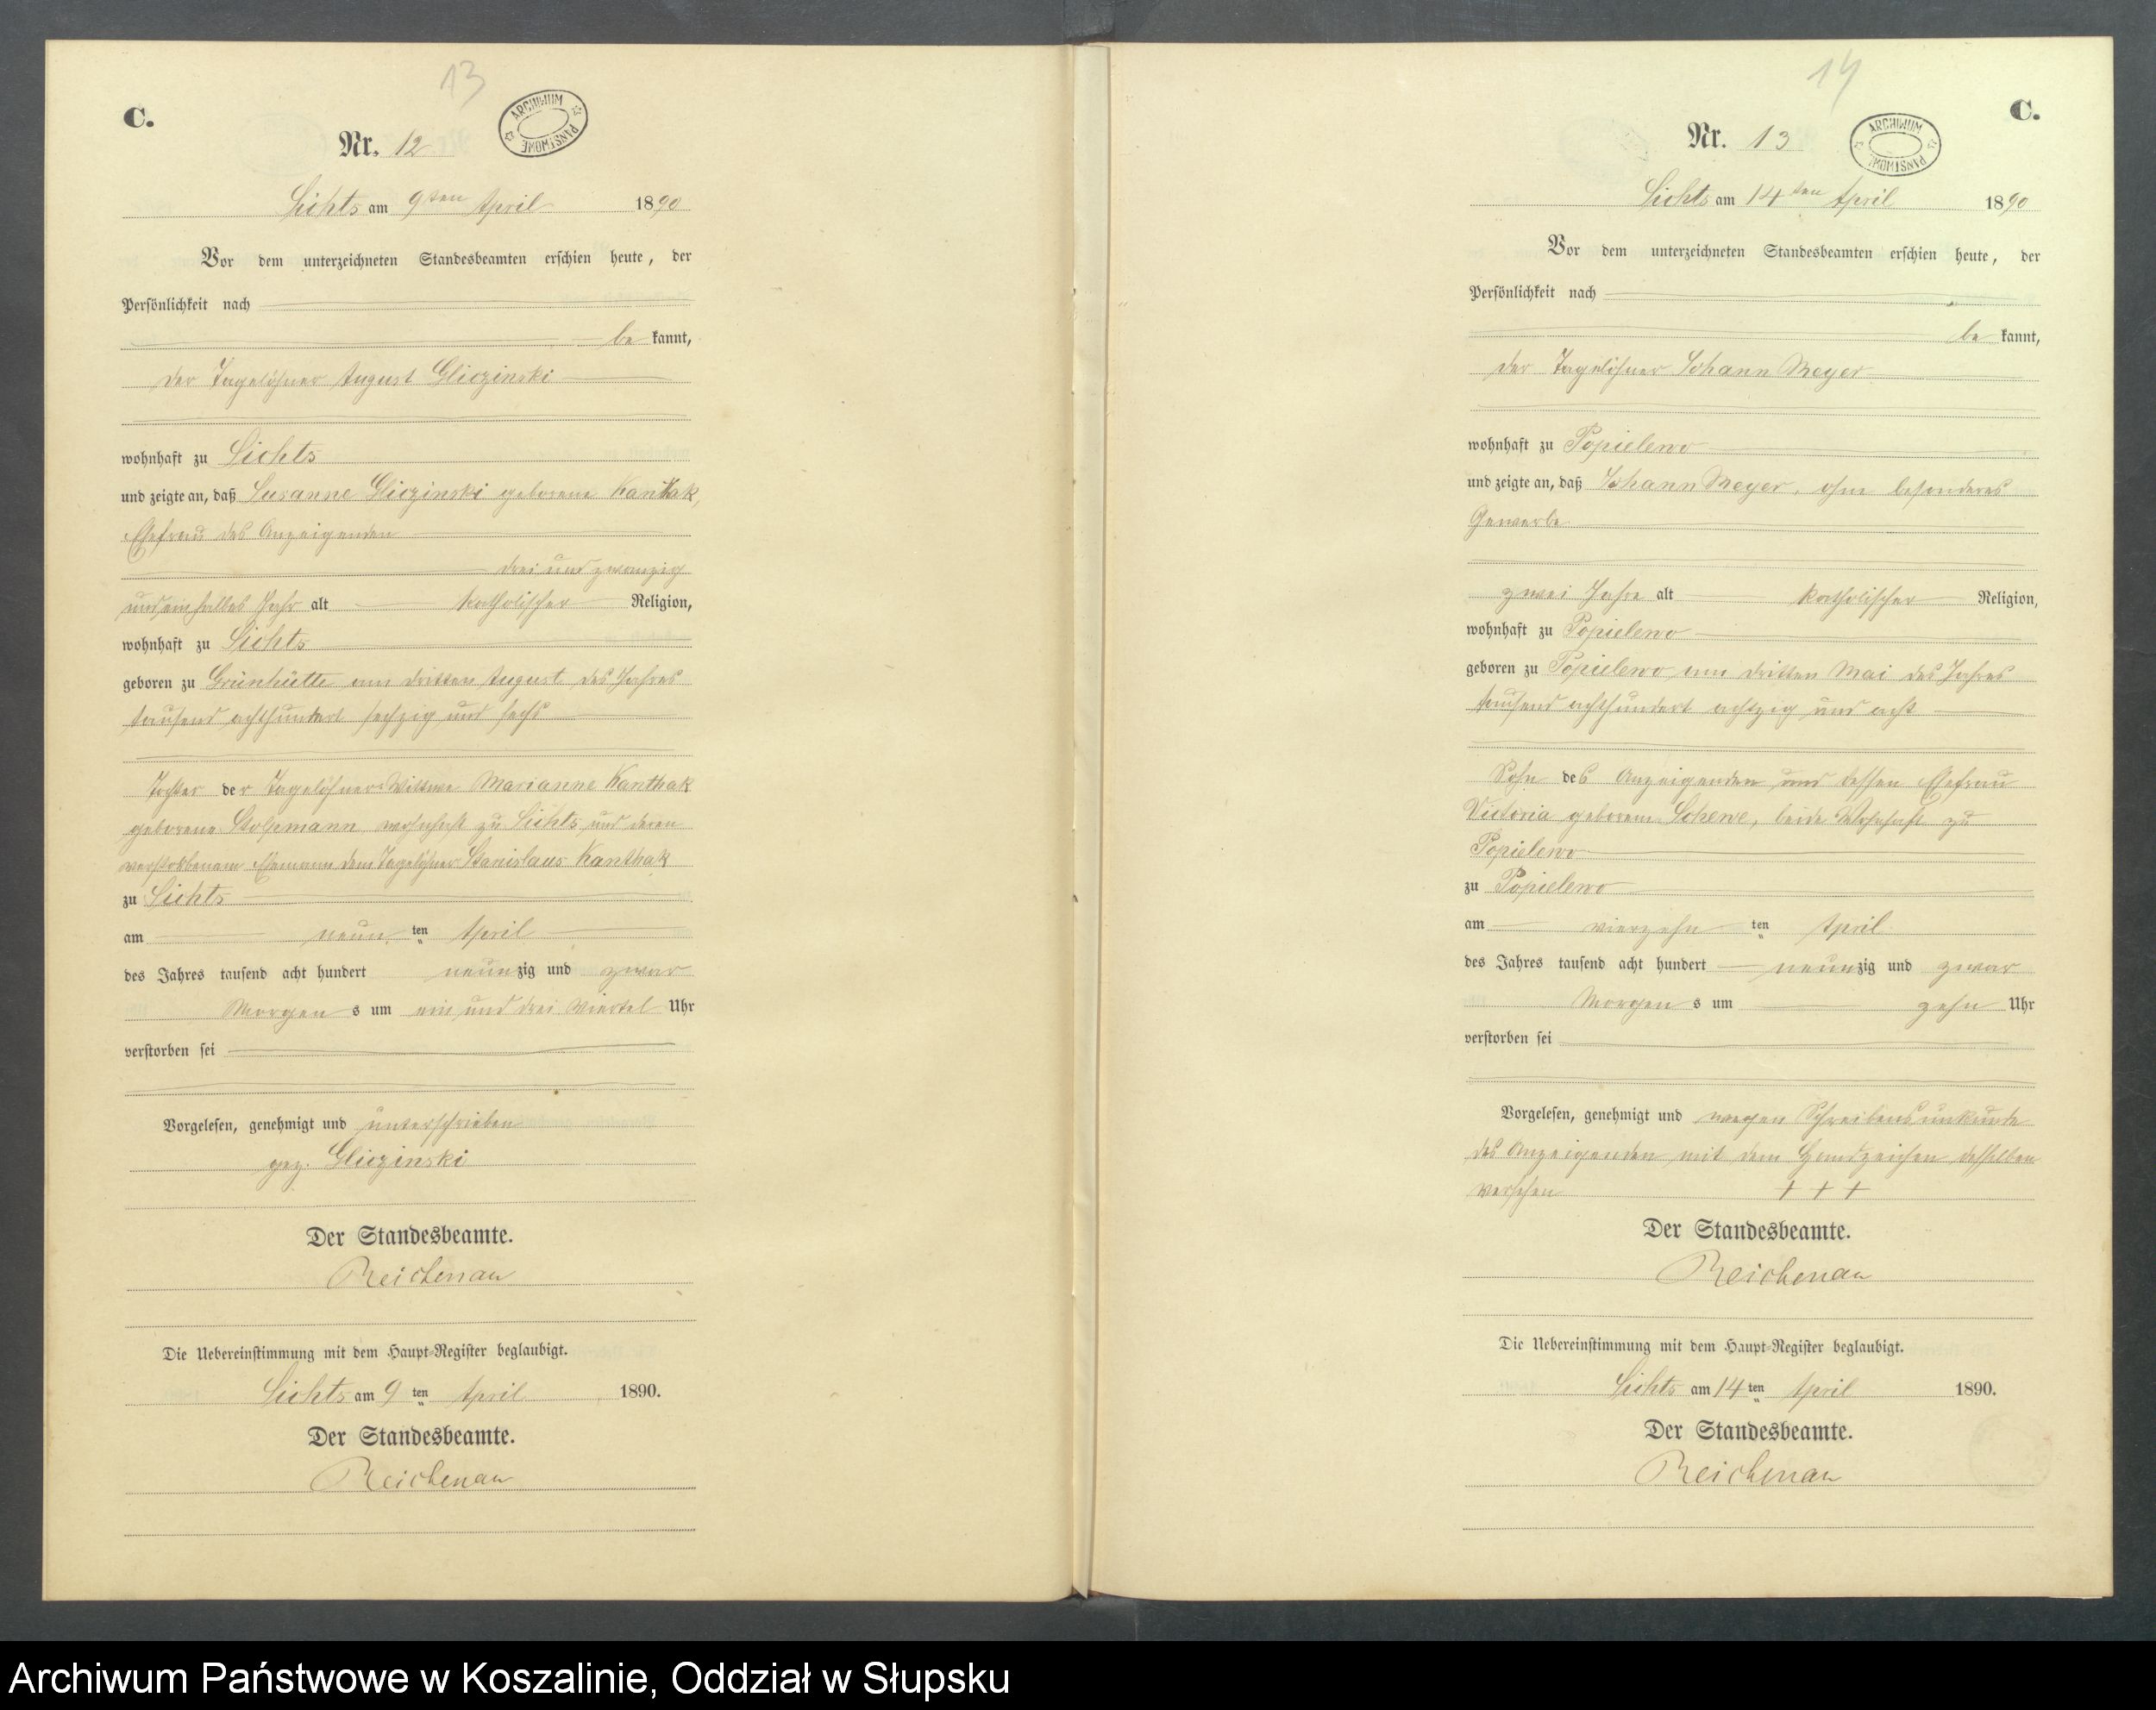 13
C.
ARCHIWUM PAŃSTWOWE
Nr. 12
Lichts am 9ten April 1890
Vor dem unterzeichneten Standesbeamten erschien heute, der
Persönlichkeit nach
be kannt,
der Tagelöhner August Gliczinski
wohnhaft zu Lichts
und zeigte an, daß Susanne Gliczinski geborene Kanthak,
Ehefrau des Anzeigenden
drei und zwanzig
und ein halbes Jahr alt katholischer Religion,
wohnhaft zu Lichts
geboren zu Grünhütte am dritten August des Jahres
tausend achthundert sechzig und sechs
Tochter der Tagelöhner-Wittwe Marianne Kanthak
geborene Stolzmann, wohnhaft zu Lichts und deren
verstorbenem Ehemann dem Tagelöhner Stanislaus Kanthak
zu Lichts
am neun ten April
des Jahres tausend acht hundert neunzig und zwar
Morgen s um ein und drei Viertel Uhr
verstorben sei
Vorgelesen, genehmigt und unterschrieben
gez. Gliczinski
Der Standesbeamte.
Reichenau
Die Uebereinstimmung mit dem Haupt-Register beglaubigt.
Lichts am 9 ten April 1890.
Der Standesbeamte.
Reichenau
14
C.
ARCHIWUM PAŃSTWOWE
Nr. 13
Lichts am 14ten April 1890
Vor dem unterzeichneten Standesbeamten erschien heute, der
Persönlichkeit nach
be kannt,
der Tagelöhner Johann Meyer
wohnhaft zu Popielewo
und zeigte an, daß Johann Meyer, ohne besonderes
Gewerbe
zwei Jahre alt katholischer Religion,
wohnhaft zu Popielewo
geboren zu Popielewo am dritten Mai des Jahres
tausend achthundert achtzig und acht
Sohn des Anzeigenden und dessen Ehefrau
Victoria geborene Schewe, beide Wohnhaft zu
Popielewo
zu Popielewo
am vierzehn ten April
des Jahres tausend acht hundert neunzig und zwar
Morgen s um zehn Uhr
verstorben sei
Vorgelesen, genehmigt und wegen Schreibensunkunde
des Anzeigenden mit dem Handzeichen desselben
versehen + + +
Der Standesbeamte.
Reichenau
Die Uebereinstimmung mit dem Haupt-Register beglaubigt.
Lichts am 14 ten April 1890.
Der Standesbeamte.
Reichenau
Archiwum Państwowe w Koszalinie, Oddział w Słupsku